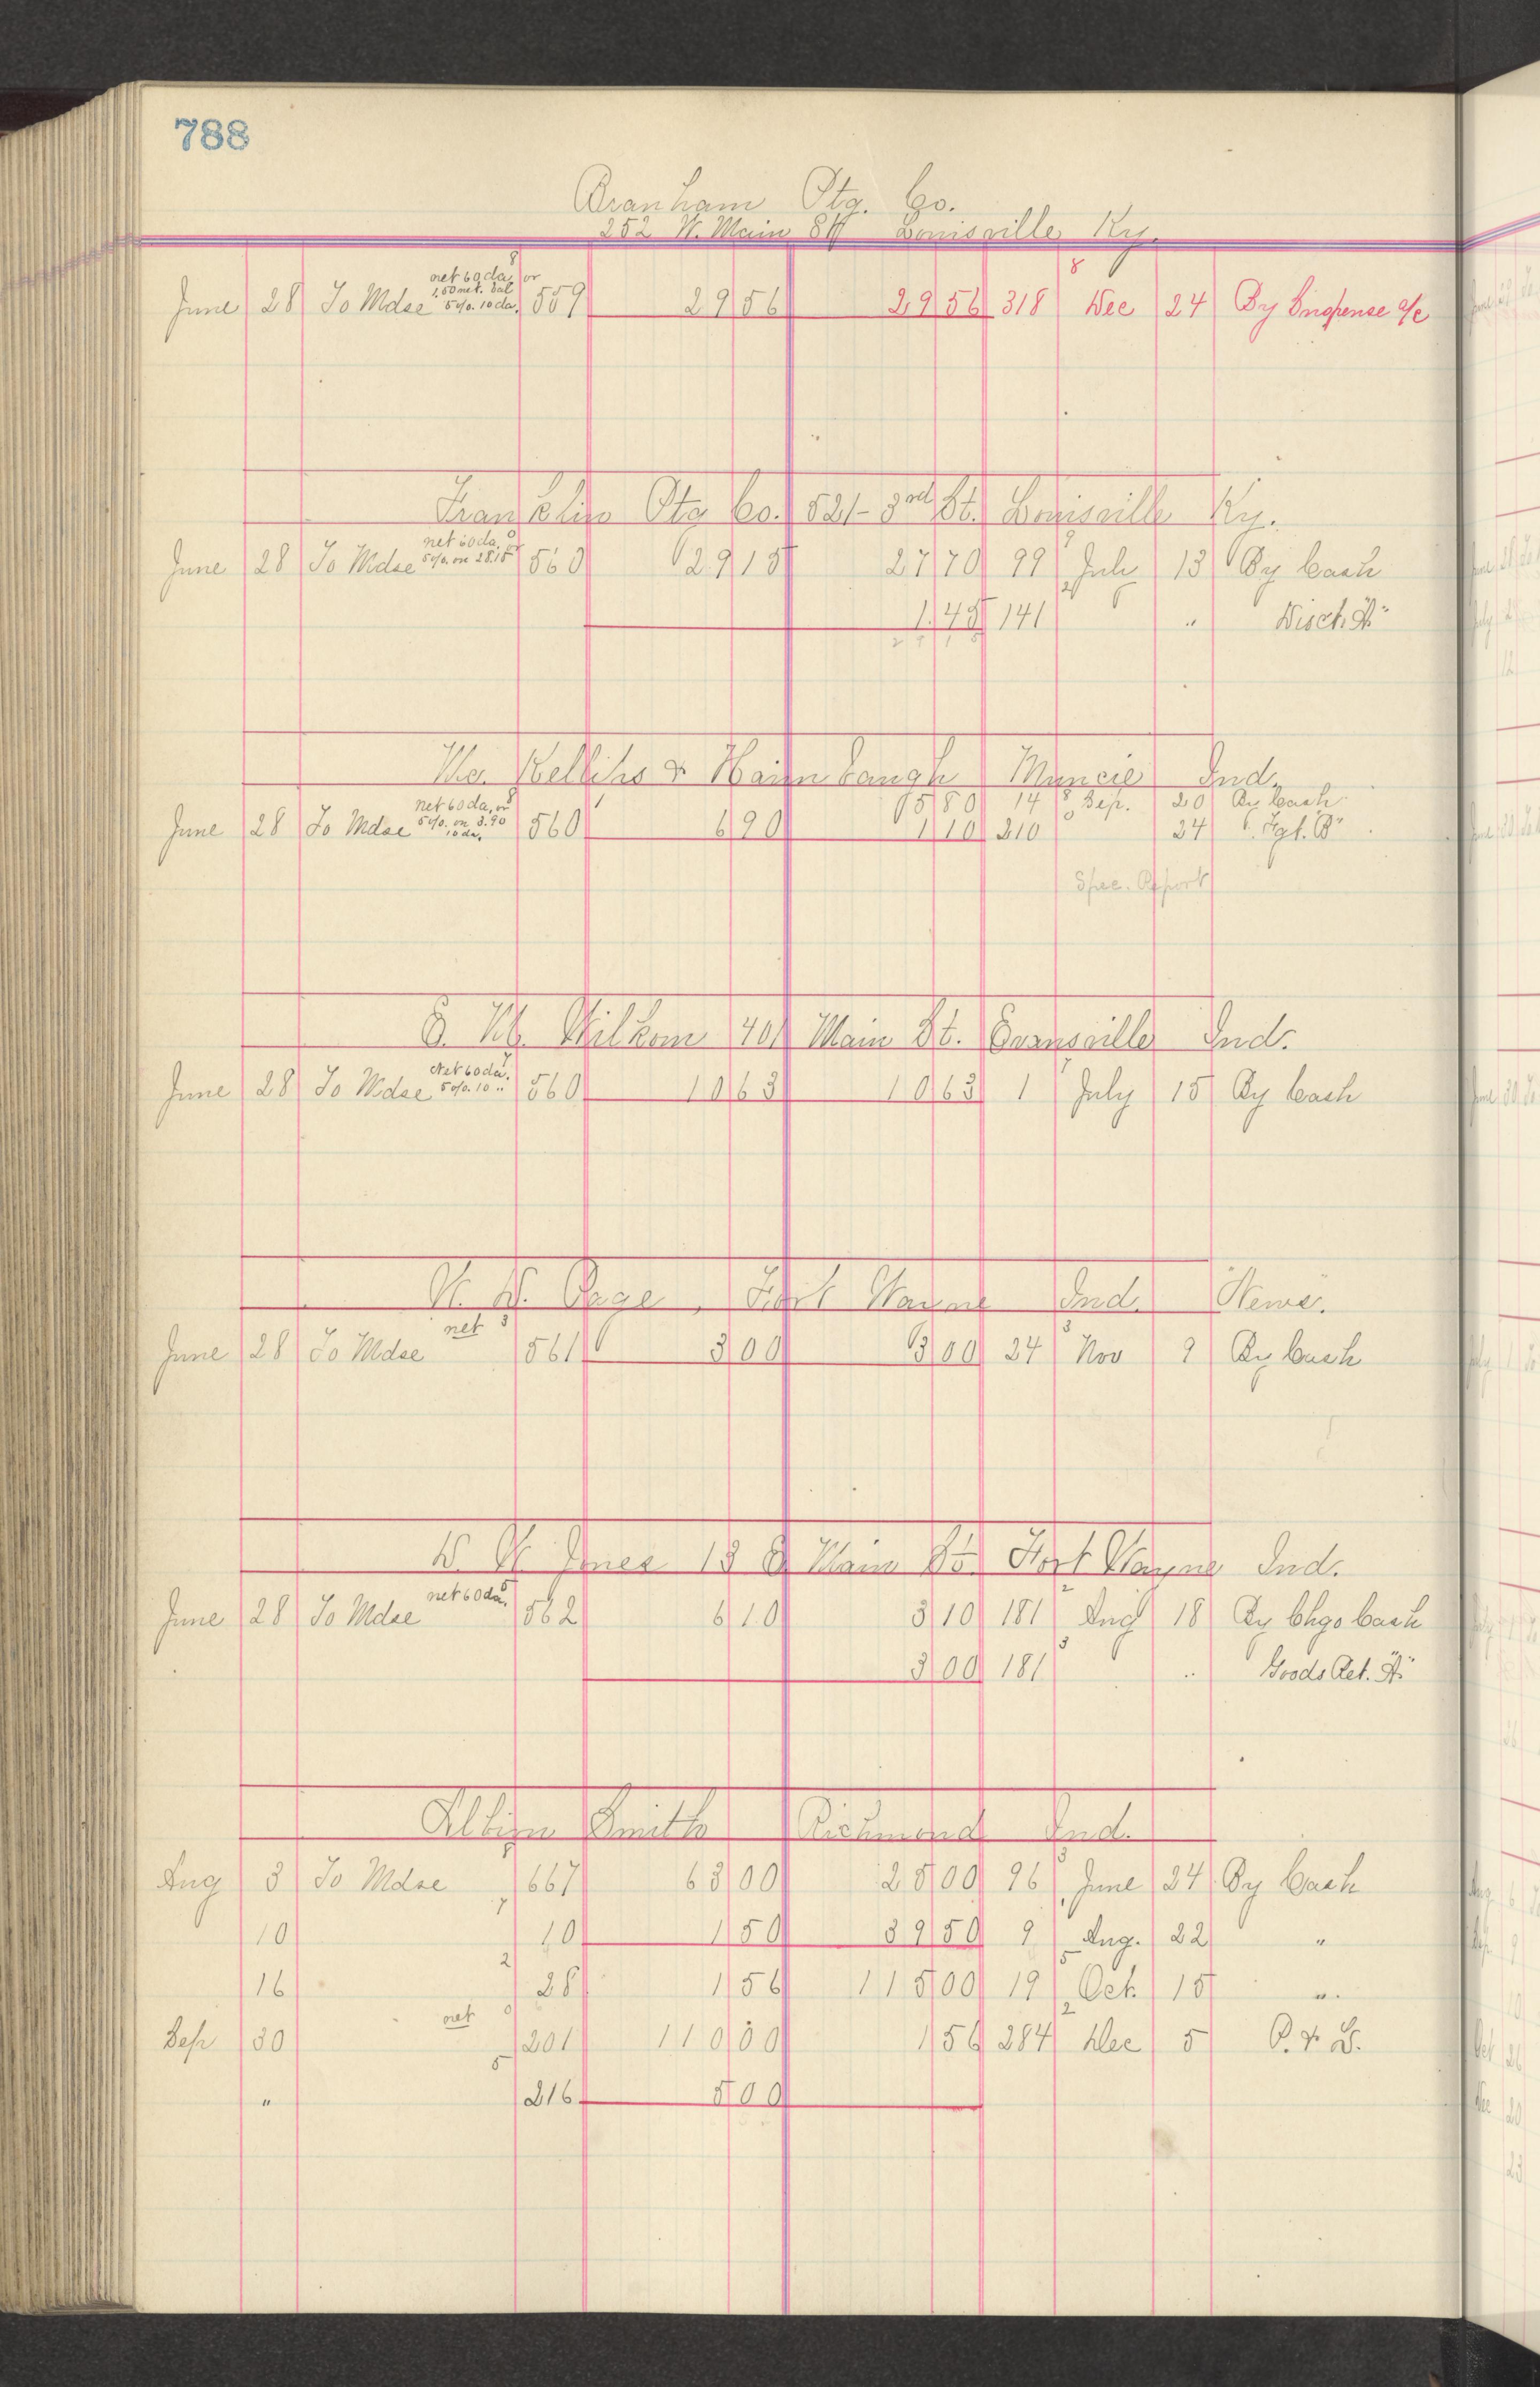 788
Branham Ptg. Co.
252 W. Main St Louisville Ky.
8
net 60 da. or
1.50 net. bal
June 28 To Mdse 5%. 10 da. 559 29 56 29 56 318 8 Dec 24 By Suspense a/c
Franklin Ptg Co. 521-3rd St. Louisville Ky.
net 60 da. or
June 28 To Mdse 5%. on 28.15 560 29 15 27 70 99 July 13 By Cash
1 45 141 " Disct. "A"
29 15
Kelline & Muncie Ind.
net 60 da. or 5 80 14 Sep. 20 By Cash
June 28 To Mdse 5%. on 3.90 560 6 90 1 10 210 24 " Fgt. B"
10 da.
Spec. Report
E. W. Wilkom 401 Main St. Evansville Ind.
Net 60 da.
June 28 To Mdse 5%. 10 " 560 10 63 10 63 1 July 15 By Cash
W. W. Page, Fort Wayne Ind. News.
net 3
June 28 To Mdse 561 3 00 3 00 24 3 Nov 9 By Cash
W. Jones 13 E Main St. Fort Wayne Ind.
net 60 da.
June 28 To Mdse 562 6 10 3 10 181 2 Aug 18 By Chgo Cash
3 00 181 3 " Goods Ret. "A"
Albion Smith Richmond Ind.
Aug 3 To Mdse 667 63 00 25 00 96 3 June 24 By Cash
10 7 10 1 50 39 50 9 Aug. 22 "
16 2 28 1 56 115 00 19 5 Oct. 15 "
Sep 30 net 0 201 110 00 1 56 284 2 Dec 5 P. & L.
" 5 216 5 00